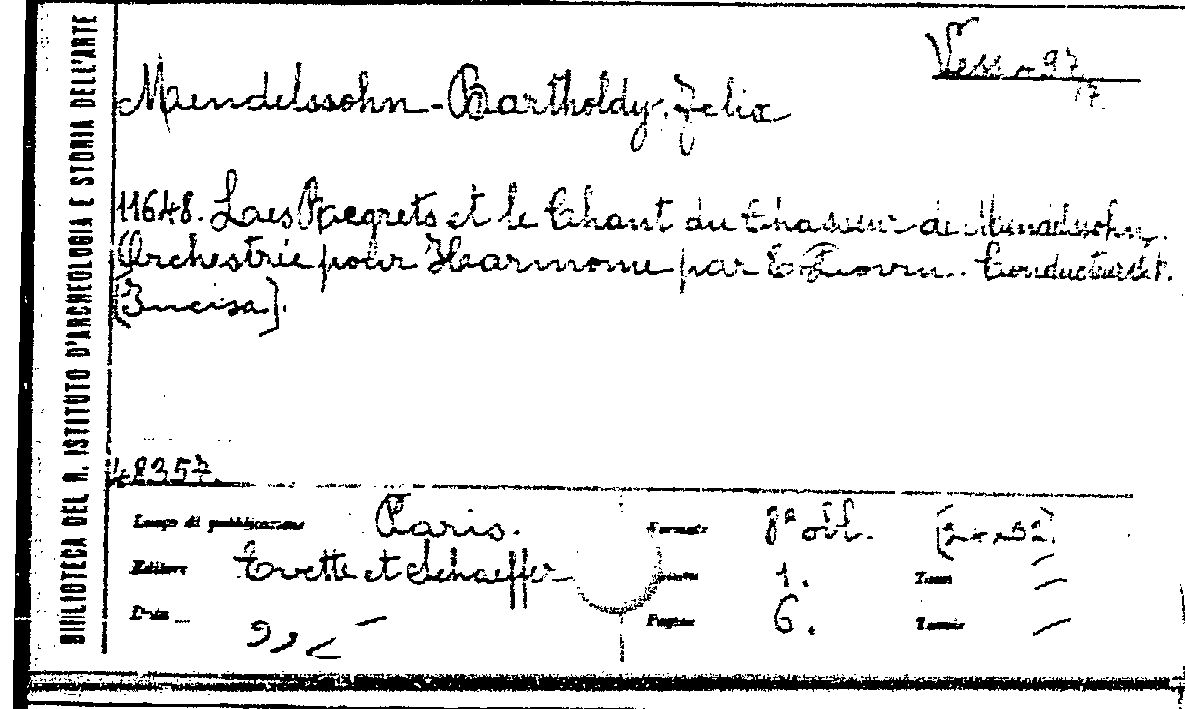 BIBLIOTECA DEL R. ISTITUTO D'ARCHEOLOGIA E STORIA DELL'ARTE
Vess. 97
17
Mendelssohn-Bartholdy, Felix
11648. Les Regrets et le Chant du Chasseur de Mendelssohn.
Orchestrée pour Harmonie par
[Incisa].
48357.
Luogo di pubblicazione Paris.
Formato 8° obl.
Editore Evette et Schaeffer
1. Tomi —
Data
Pagine 6. Tavole —